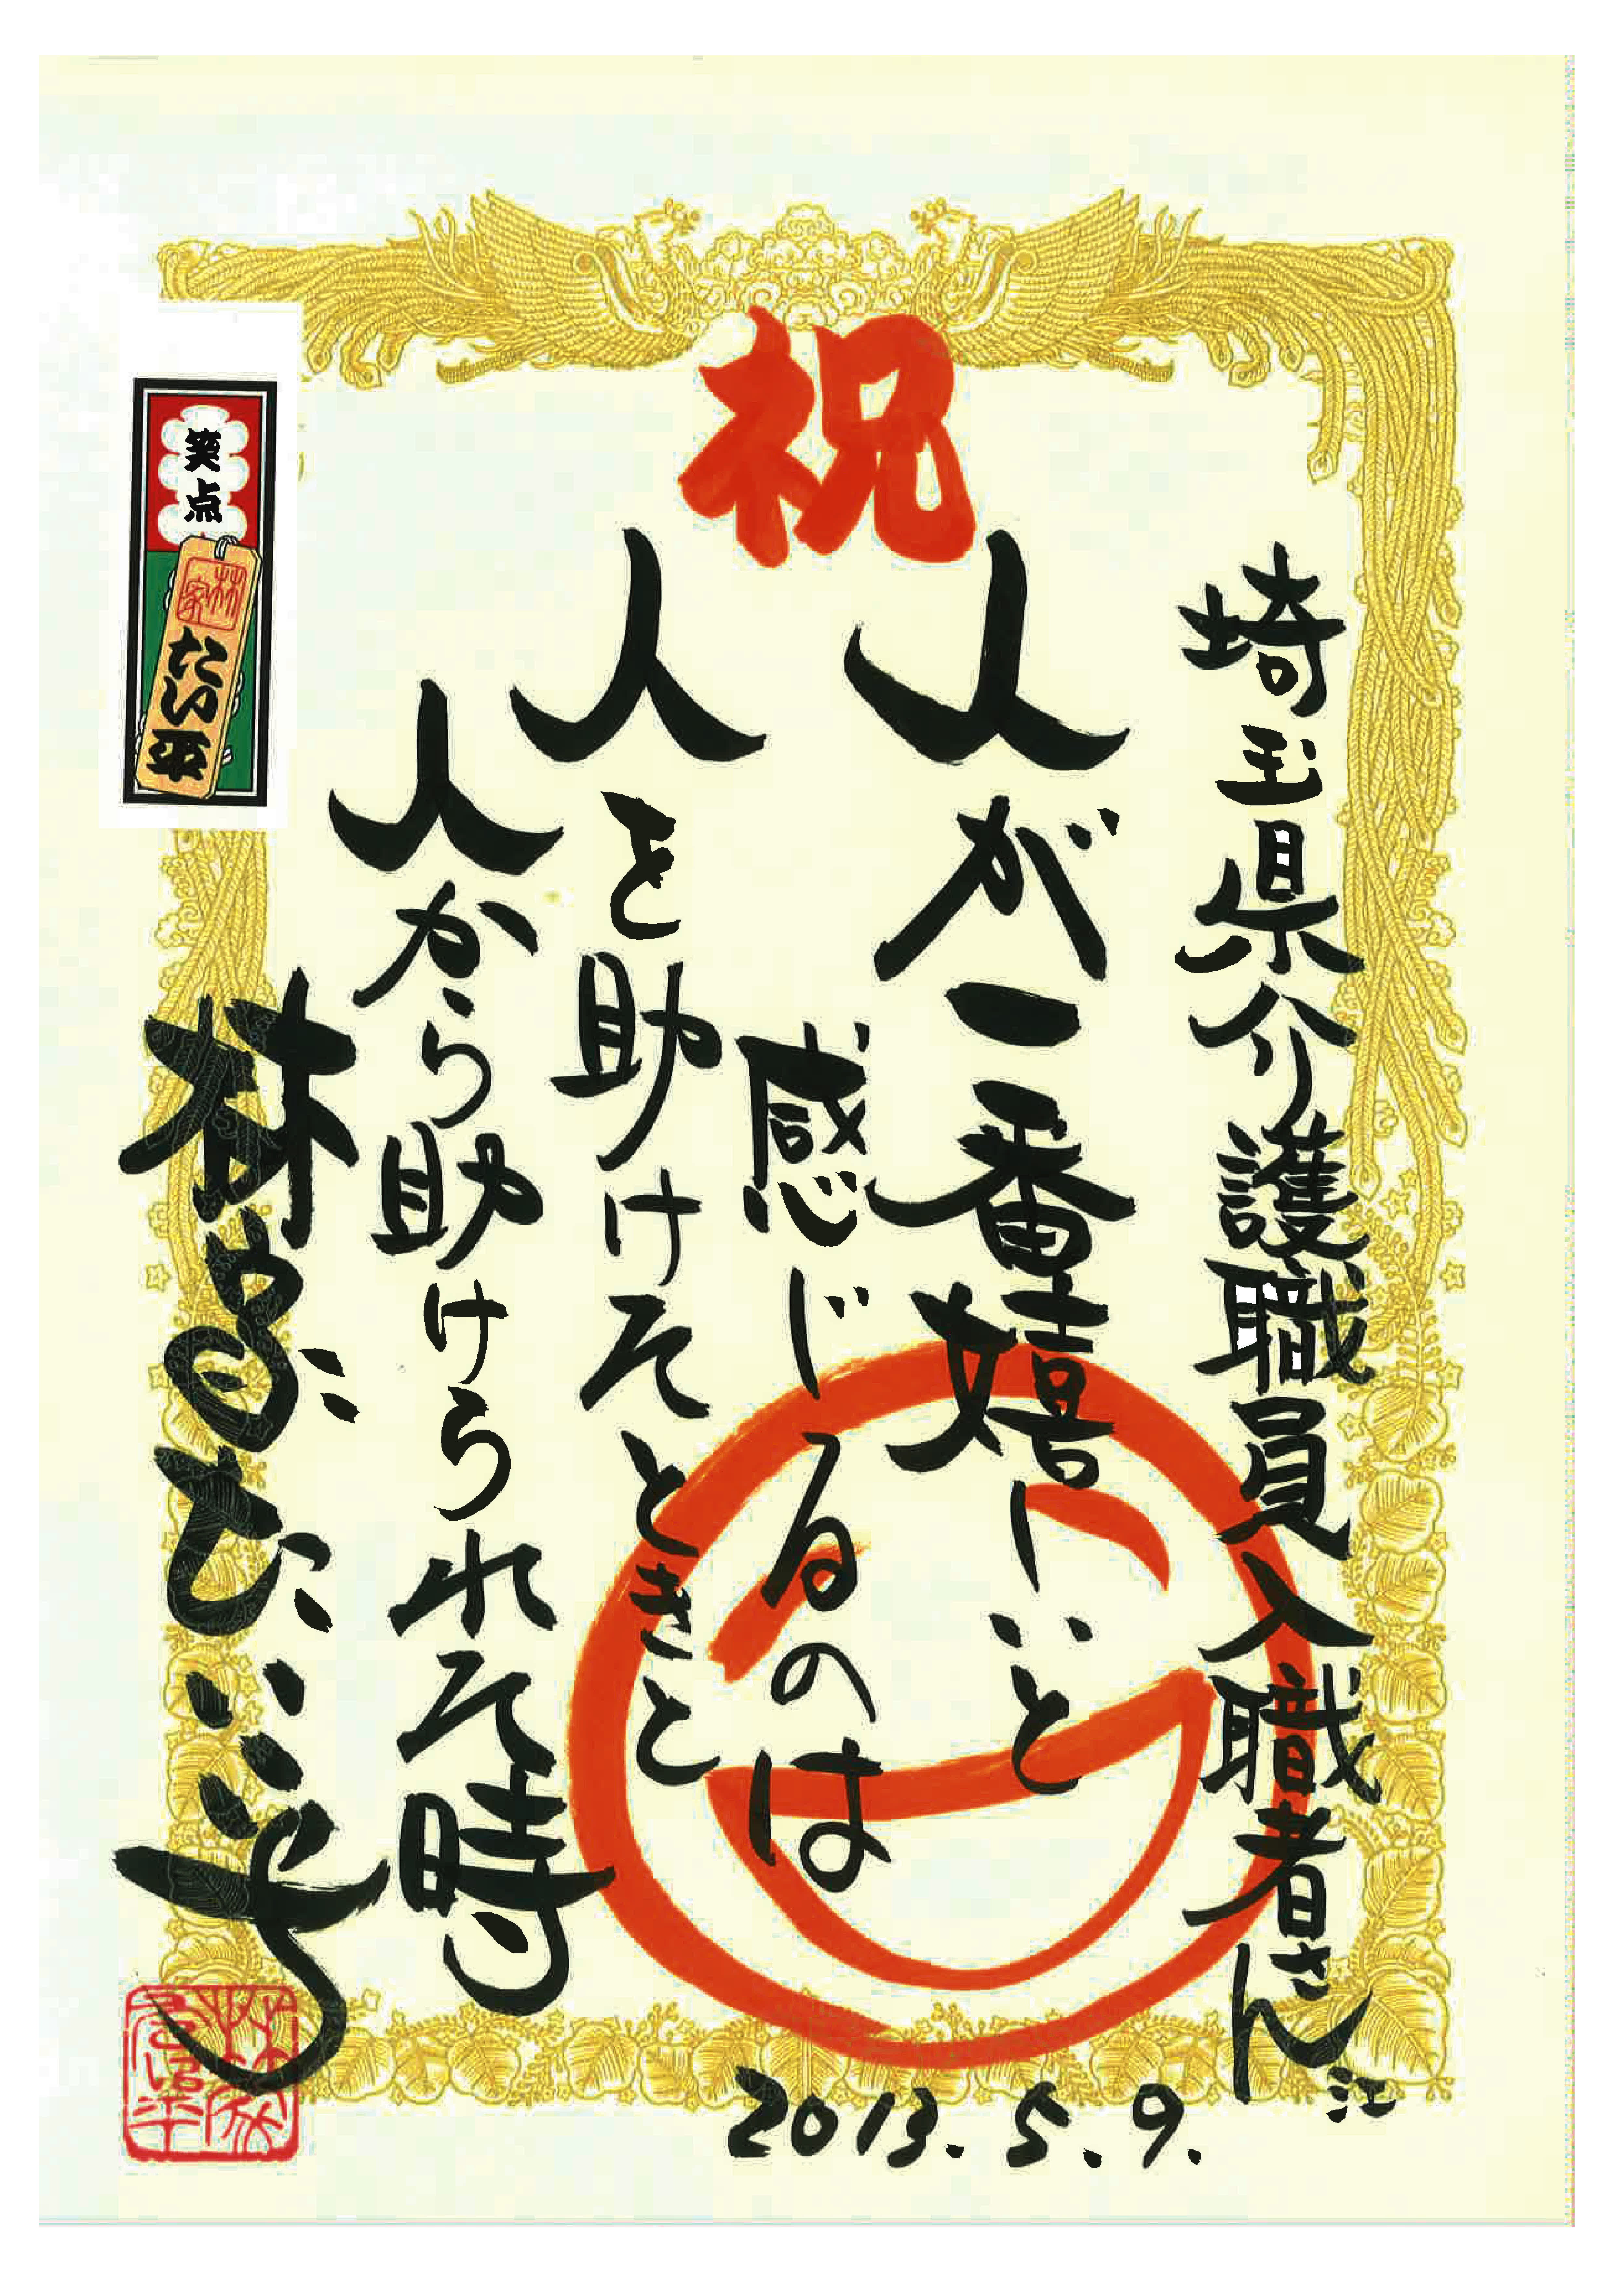 祝
埼玉県介護職員入職者さん江
人が一番嬉しいと
感じるのは
人を助けたときと
人から助けられた時
林家たい平
笑点
林家
たい平
2013.5.9.